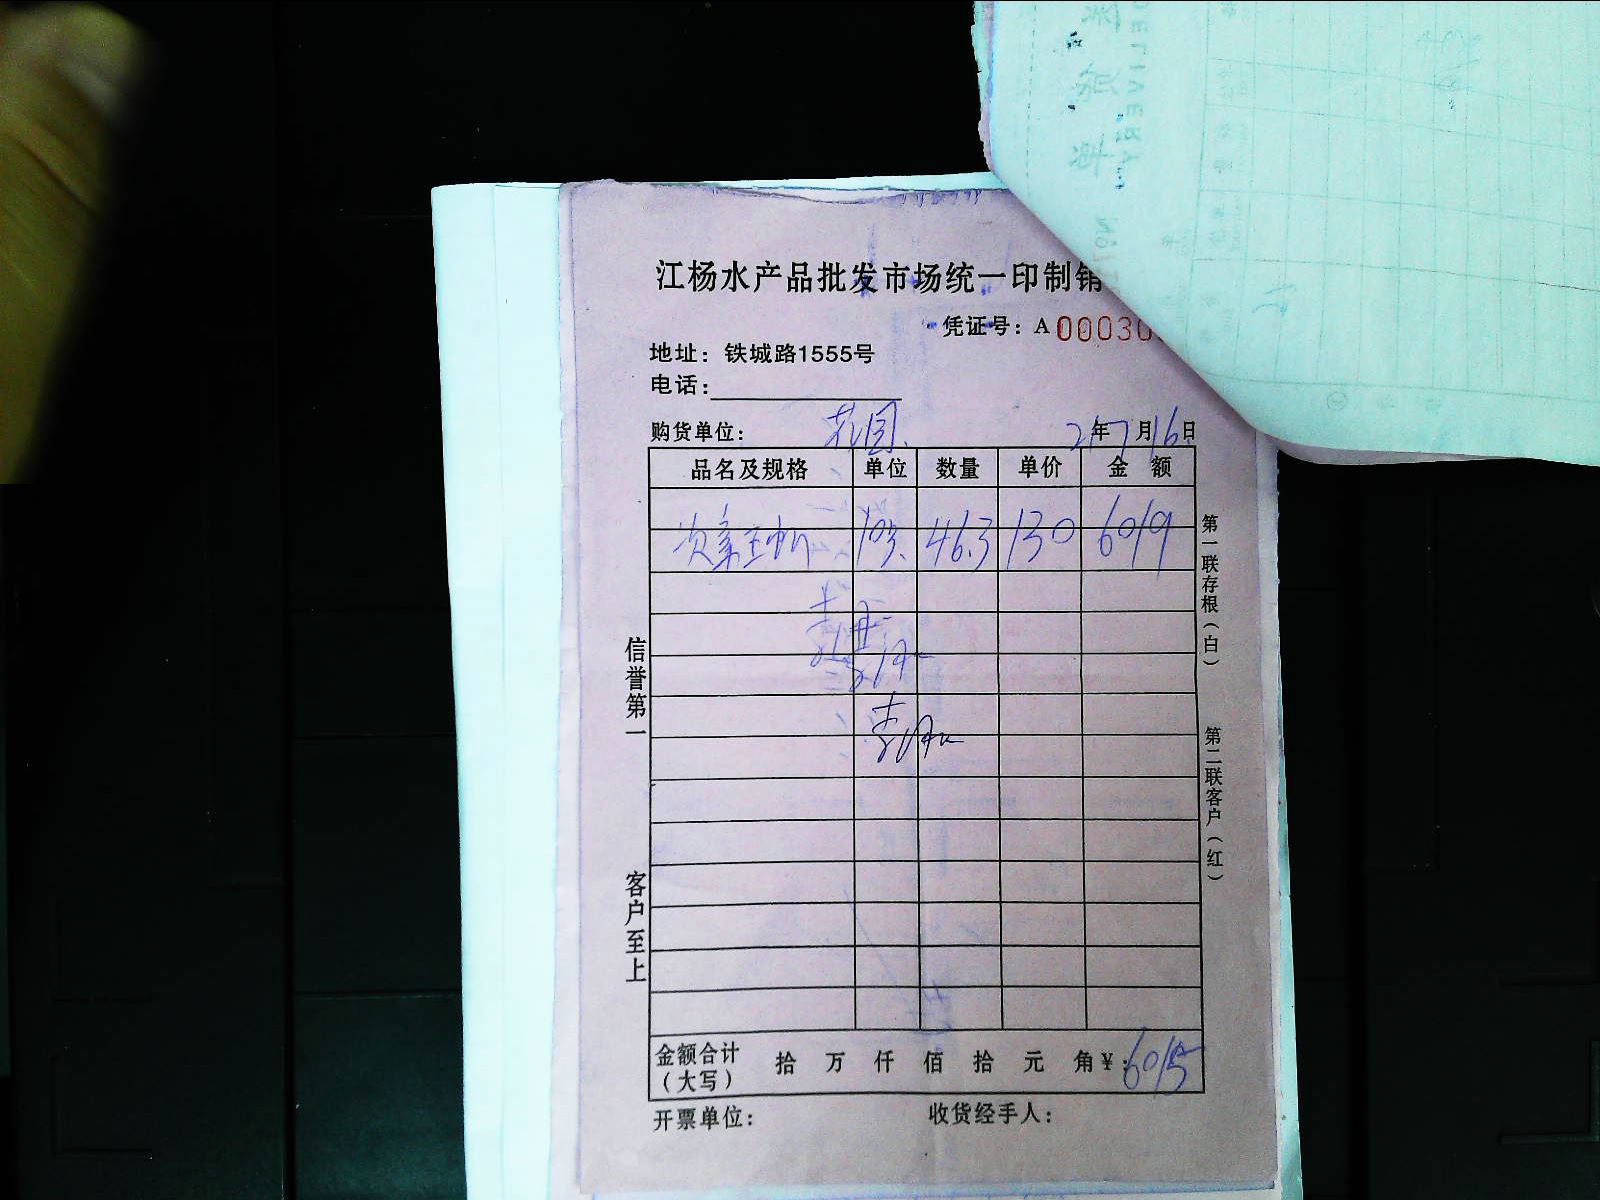 江杨水产品批发市场统一印制销
凭证号：A 00030
地址：铁城路1555号
电话：
购货单位： 花园 2年7月16日
品名及规格 单位 数量 单价 金 额
46.3 130 6019
信誉第一
客户至上
第一联存根（白）
第二联客户（红）
金额合计（大写） 拾 万 仟 佰 拾 元 角 ¥：6015
开票单位： 收货经手人：
DELIVERY NOTE